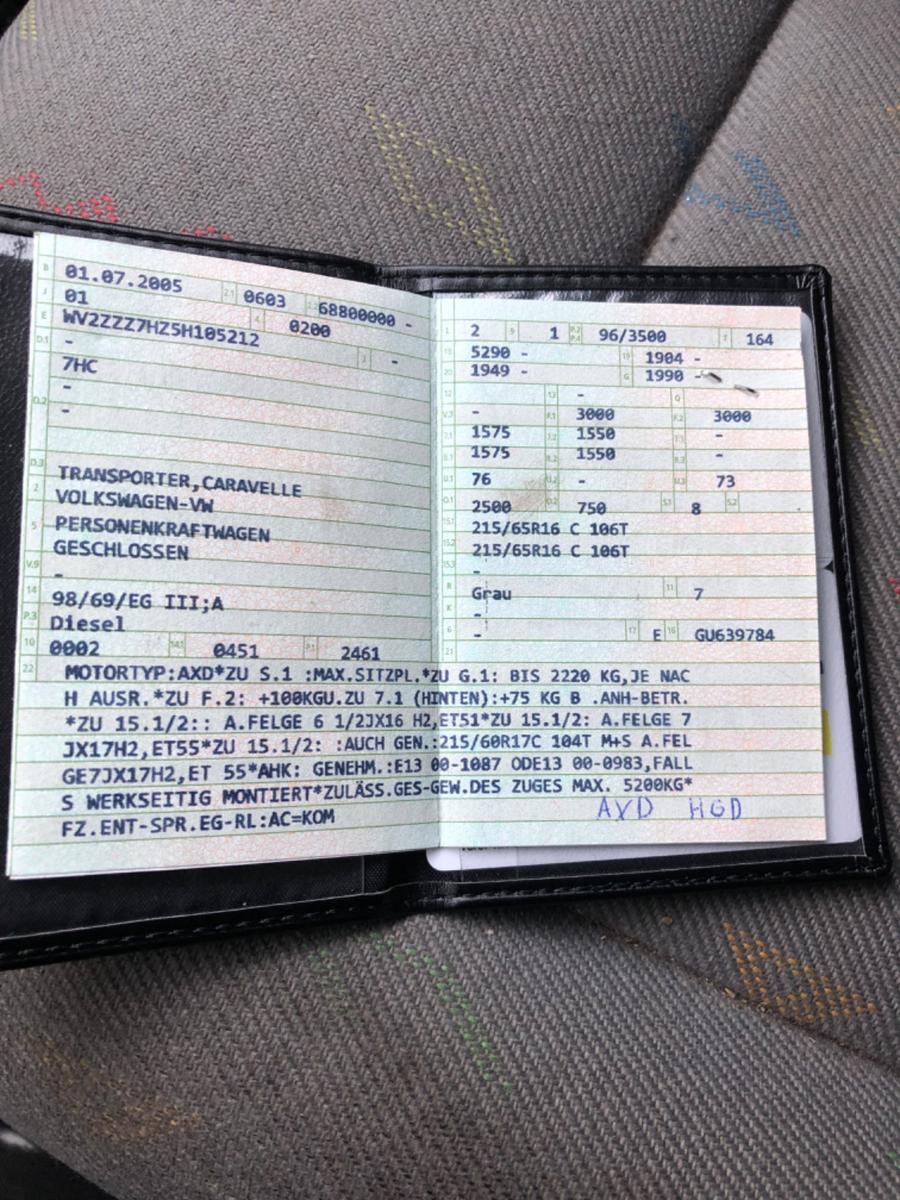 B 01.07.2005 2.1 0603 2.2 68800000 -
J 01 4 0200
E WV2ZZZ7HZ5H105212 3 -
D.1 -
7HC
D.2 -
-
D.3 TRANSPORTER,CARAVELLE
2 VOLKSWAGEN-VW
5 PERSONENKRAFTWAGEN
GESCHLOSSEN
V.9 -
14 98/69/EG III;A
P.3 Diesel
10 0002 14.1 0451 P.1 2461
L 2 9 1 P.2 P.4 96/3500 T 164
18 5290 - 19 1904 -
20 1949 - G 1990 -
12 13 - Q
V.7 - F.1 3000 F.2 3000
7.1 1575 7.2 1550 7.3 -
8.1 1575 8.2 1550 8.3 -
U.1 76 U.2 - U.3 73
O.1 2500 O.2 750 S.1 8 S.2
15.1 215/65R16 C 106T
15.2 215/65R16 C 106T
15.3 -
R Grau 11 7
K -
6 - 17 E 16 GU639784
21
22 MOTORTYP:AXD*ZU S.1 :MAX.SITZPL.*ZU G.1: BIS 2220 KG,JE NAC
H AUSR.*ZU F.2: +100KGU.ZU 7.1 (HINTEN):+75 KG B .ANH-BETR.
*ZU 15.1/2:: A.FELGE 6 1/2JX16 H2,ET51*ZU 15.1/2: A.FELGE 7
JX17H2,ET55*ZU 15.1/2: :AUCH GEN.:215/60R17C 104T M+S A.FEL
GE7JX17H2,ET 55*AHK: GENEHM.:E13 00-1087 ODE13 00-0983,FALL
S WERKSEITIG MONTIERT*ZULÄSS.GES-GEW.DES ZUGES MAX. 5200KG*
FZ.ENT-SPR.EG-RL:AC=KOM
AXD HGD